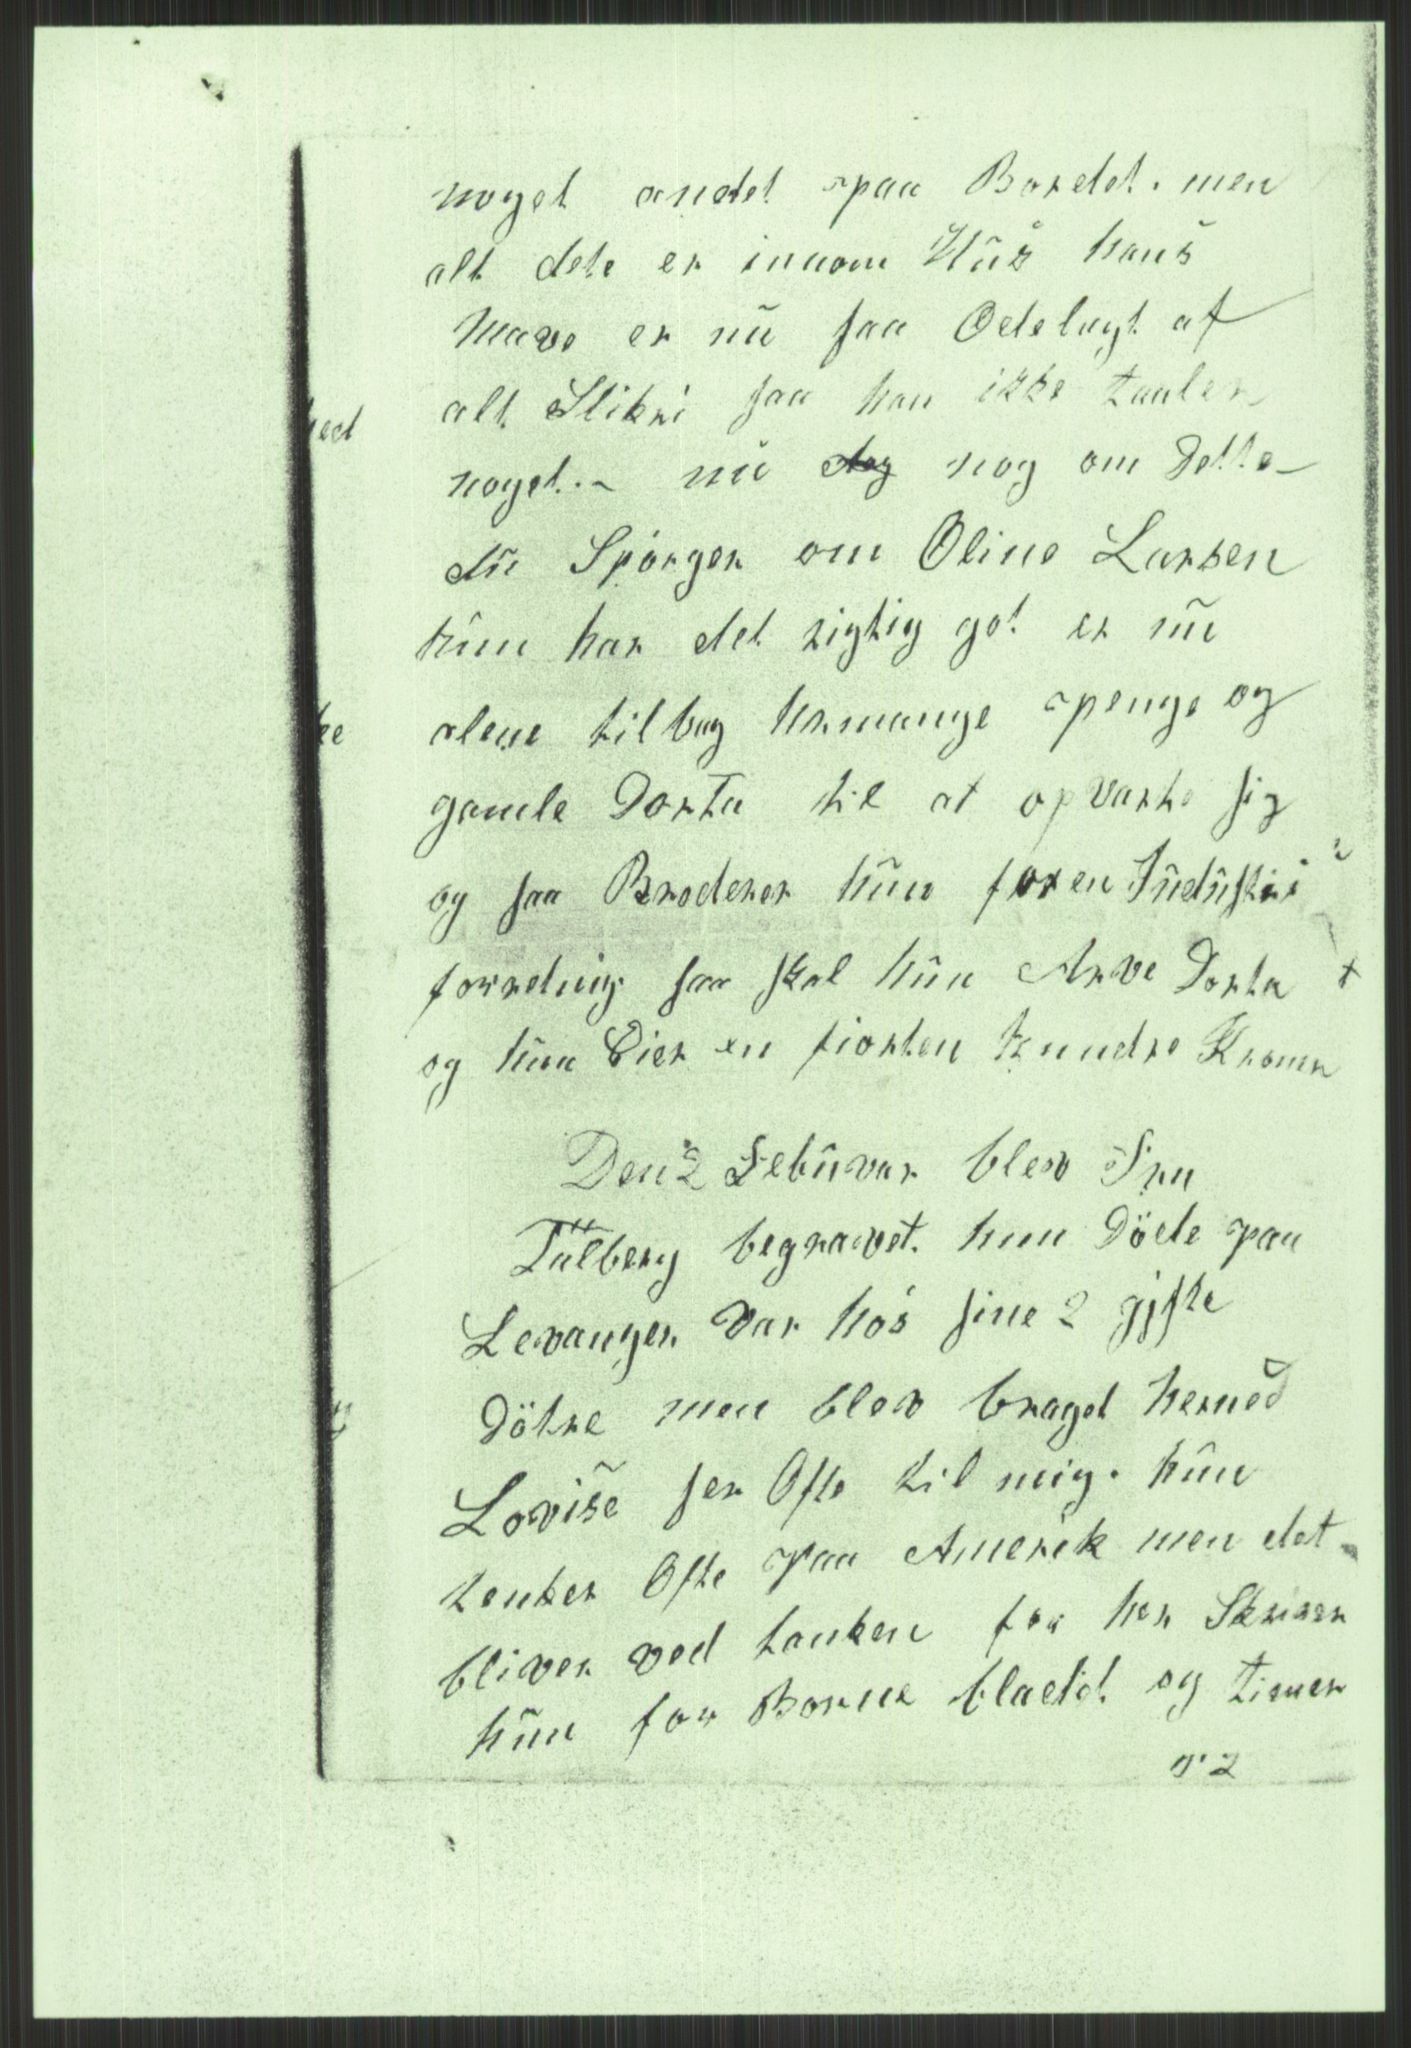 noget andet paa Bordet. men
alt dete er innom Hüs hans
Mave er nü saa Odelagt af
alt Slikri saa han ikke taaler
noget. - nü nog om Dette -
dü Spörger om Oline Larsen
hün har det rigtig got er nü
alene tilbag mange penge og
gamle Dorta til at opvarte sig
og saa Broderer hün for en Indüstri
forretning saa skal hün Arve Dorta
og hün Eier en fiorten hundre Kroner
Den 2 Febüvar blev Fru
Tülberg begravet. hun Döde paa
Levanger var hos sine 2 gifte
Dötre men blev braget herned
Lovise ser Ofte til mig. hün
tenker Ofte paa Amerik men det
bliver ved tanken for her Skriver
hün for Borne bladet og timer